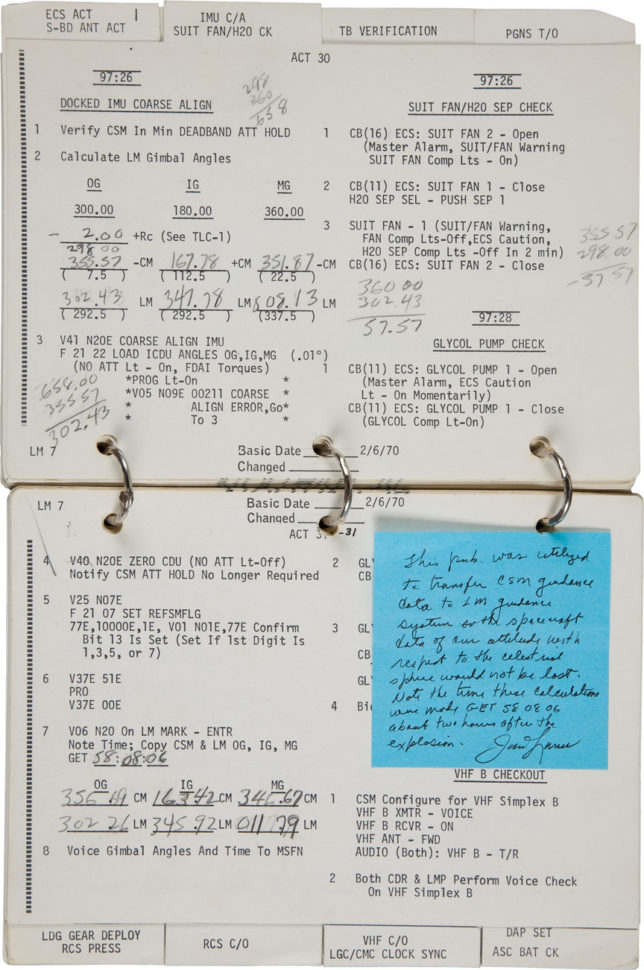 ECS ACT
S-BD ANT ACT
IMU C/A
SUIT FAN/H2O CK
TB VERIFICATION
PGNS T/O
ACT 30
97:26
DOCKED IMU COARSE ALIGN
298
360
658
1 Verify CSM In Min DEADBAND ATT HOLD
2 Calculate LM Gimbal Angles
OG IG MG
300.00 180.00 360.00
- 2.00 +Rc (See TLC-1)
298 00
355.57 -CM 167.78 +CM 351.87 -CM
( 7.5 ) (112.5 ) ( 22.5 )
302.43 LM 347.78 LM 008.13 LM
(292.5 ) (292.5 ) (337.5 )
3 V41 N20E COARSE ALIGN IMU
F 21 22 LOAD ICDU ANGLES OG,IG,MG (.01°)
(NO ATT Lt - On, FDAI Torques)
*PROG Lt-On *
*V05 N09E 00211 COARSE *
* ALIGN ERROR,Go*
* To 3 *
658.00
355 57
302.43
97:26
SUIT FAN/H2O SEP CHECK
1 CB(16) ECS: SUIT FAN 2 - Open
(Master Alarm, SUIT/FAN Warning
SUIT FAN Comp Lts - On)
2 CB(11) ECS: SUIT FAN 1 - Close
H2O SEP SEL - PUSH SEP 1
3 SUIT FAN - 1 (SUIT/FAN Warning,
FAN Comp Lts-Off,ECS Caution,
H2O SEP Comp Lts -Off In 2 min)
CB(16) ECS: SUIT FAN 2 - Close
355 57
298 00
-37.57
360 00
302.43
57.57
97:28
GLYCOL PUMP CHECK
1 CB(11) ECS: GLYCOL PUMP 1 - Open
(Master Alarm, ECS Caution
Lt - On Momentarily)
CB(11) ECS: GLYCOL PUMP 1 - Close
(GLYCOL Comp Lt-On)
LM 7
Basic Date 2/6/70
Changed
LM 7
Basic Date 2/6/70
Changed
ACT 31
-31
4 V40 N20E ZERO CDU (NO ATT Lt-Off)
Notify CSM ATT HOLD No Longer Required
5 V25 N07E
F 21 07 SET REFSMFLG
77E,10000E,1E, V01 N01E,77E Confirm
Bit 13 Is Set (Set If 1st Digit Is
1,3,5, or 7)
6 V37E 51E
PRO
V37E 00E
7 V06 N20 On LM MARK - ENTR
Note Time; Copy CSM & LM OG, IG, MG
GET 58:08:06
OG IG MG
356 69 CM 163 42 CM 346.67 CM
302 26 LM 345.92 LM 011 79 LM
8 Voice Gimbal Angles And Time To MSFN
2 GL
CB
3 GL
CB
GL
4 Bi
This pub. was utilized
to transfer CSM guidance
data to LM guidance
system so the spacecraft
data of our attitude with
respect to the celestial
sphere would not be lost.
Note the time these calculations
were made GET 58 08 06
about two hours after the
explosion.
VHF B CHECKOUT
1 CSM Configure for VHF Simplex B
VHF B XMTR - VOICE
VHF B RCVR - ON
VHF ANT - FWD
AUDIO (Both): VHF B - T/R
2 Both CDR & LMP Perform Voice Check
On VHF Simplex B
LDG GEAR DEPLOY
RCS PRESS
RCS C/O
VHF C/O
LGC/CMC CLOCK SYNC
DAP SET
ASC BAT CK